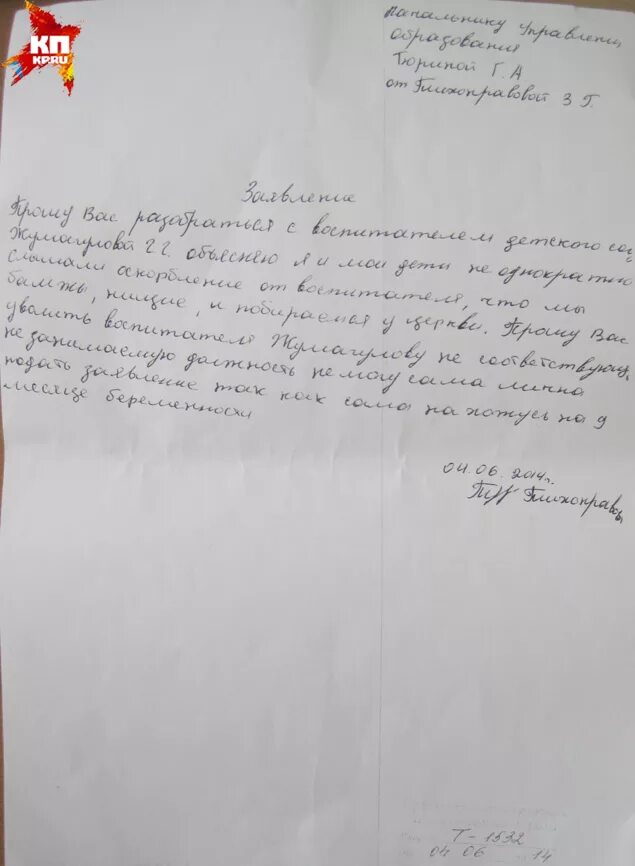 КП
KP.RU
начальнику Управлени
образования
Тюриной Г. А
от Тихоправовой З Г.
Заявление
Прошу Вас разобраться с воспитателем детского са
Жумагуловой Г. Г. объясняю я и мои дети не однократно
слышали оскорбление от воспитателя, что мы
бамжы, нищие, и побираемся у церкви. Прошу Вас
уволить воспитателя Жумагулову не соответствующ
не занимаемую должность не могу сама лично
подать заявление так как сама на хожусь на 9
месяце беременности
04. 06. 2014г.
Тихоправов
Т-1532
04 06 14